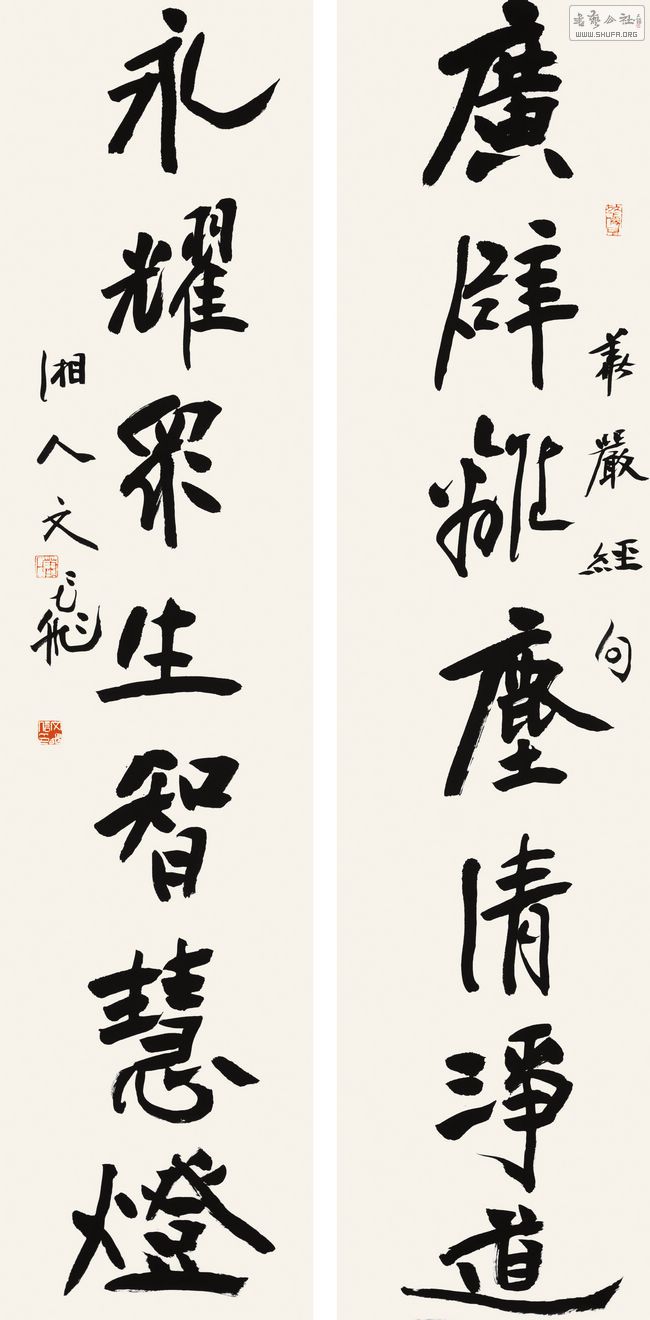 廣辟離塵清淨道
華嚴經句
永耀眾生智慧燈
湘人文三飛
書藝公社
WWW.SHUFA.ORG